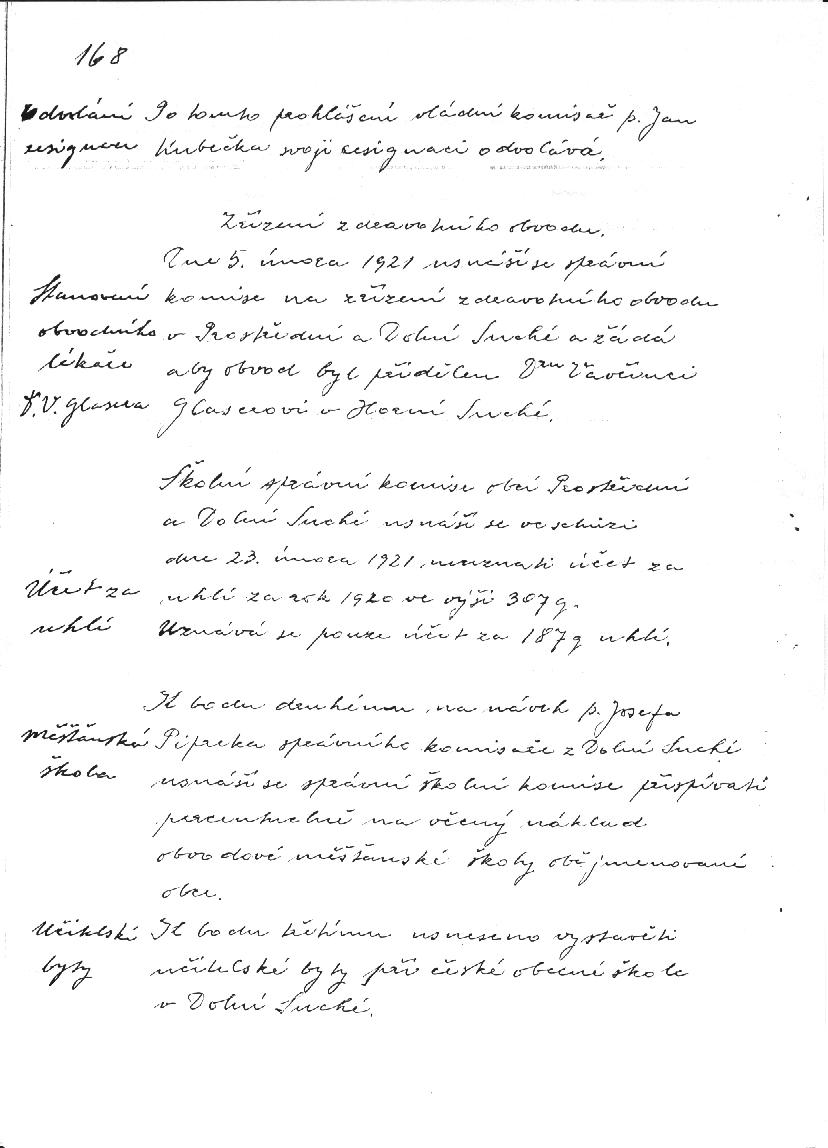 168
Odvolání Po tomto prohlášení vládní komisař p. Jan
resignace Kubečka svoji resignaci odvolává.
Zřízení zdravotního obvodu.
Dne 5. února 1921 usnáší se správní
Stanovení komise na zřízení zdravotního obvodu
obvodního v Prostřední a Dolní Suché a žádá
lékaře aby obvod byl přidělen Dru Vavřinci
V. Glasera Glaserovi v Horní Suché.
Školní správní komise obcí Prostřední
a Dolní Suché usnáší se ve schůzi
dne 23. února 1921, neuznati účet za
Účet za uhlí za rok 1920 ve výši 307 q.
uhlí Uznává se pouze účet za 187 q uhlí.
K bodu druhému na návrh p. Josefa
měšťanská Pipreka správního komisaře z Dolní Suché
škola usnáší se správní školní komise přispívati
percentuelně na věcný náklad
obvodové měšťanské školy obě jmenované
obce.
Učitelské K bodu třetímu usneseno vystavěti
byty učitelské byty při české obecné škole
v Dolní Suché.